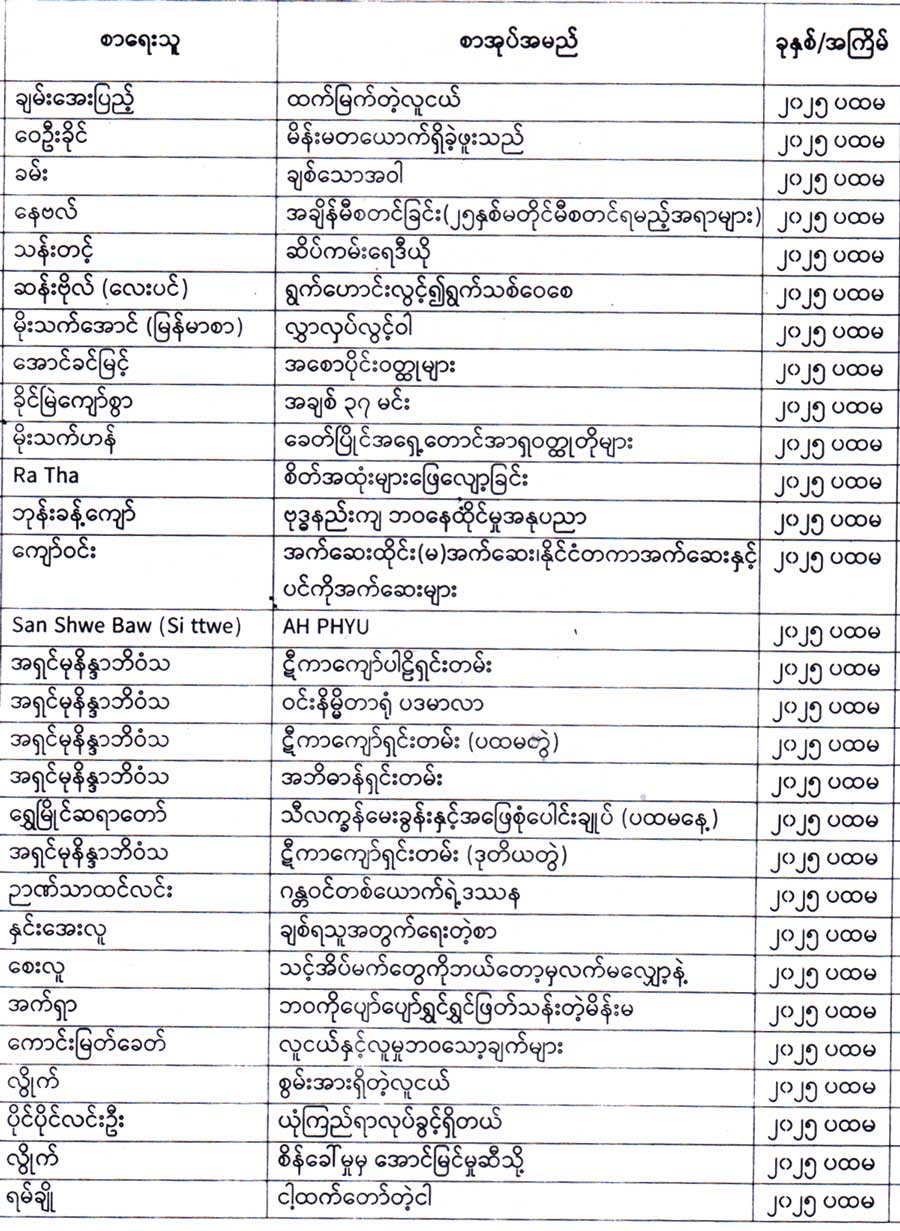 စာရေးသူ စာအုပ်အမည် ခုနှစ်/အကြိမ်
ချမ်းအေးပြည့် ထက်မြက်တဲ့လူငယ် ၂၀၂၅ ပထမ
ဝေဦးခိုင် မိန်းမတယောက်ရှိခဲ့ဖူးသည် ၂၀၂၅ ပထမ
ခမ်း ချစ်သောအဝါ ၂၀၂၅ ပထမ
နေဗလ် အချိန်မီစတင်ခြင်း(၂၅နှစ်မတိုင်မီစတင်ရမည့်အရာများ) ၂၀၂၅ ပထမ
သန်းတင့် ဆိပ်ကမ်းရေဒီယို ၂၀၂၅ ပထမ
ဆန်းဗိုလ် (လေးပင်) ရွက်ဟောင်းလွင့်၍ရွက်သစ်ဝေစေ ၂၀၂၅ ပထမ
မိုးသက်အောင် (မြန်မာစာ) လွှာလှပ်လွင့်ဝါ ၂၀၂၅ ပထမ
အောင်ခင်မြင့် အစောပိုင်းဝတ္ထုများ ၂၀၂၅ ပထမ
ခိုင်မြဲကျော်စွာ အချစ် ၃၇ မင်း ၂၀၂၅ ပထမ
မိုးသက်ဟန် ခေတ်ပြိုင်အရှေ့တောင်အာရှဝတ္ထုတိုများ ၂၀၂၅ ပထမ
Ra Tha စိတ်အထုံးများဖြေလျော့ခြင်း ၂၀၂၅ ပထမ
ဘုန်းခန့်ကျော် ဗုဒ္ဓနည်းကျ ဘဝနေထိုင်မှုအနုပညာ ၂၀၂၅ ပထမ
ကျော်ဝင်း အက်ဆေးထိုင်း(မ)အက်ဆေး၊နိုင်ငံတကာအက်ဆေးနှင့် ၂၀၂၅ ပထမ
ပင်ကိုအက်ဆေးများ
San Shwe Baw (Si ttwe) AH PHYU ၂၀၂၅ ပထမ
အရှင်မုနိန္ဒာဘိဝံသ ဋီကာကျော်ပါဠိရှင်းတမ်း ၂၀၂၅ ပထမ
အရှင်မုနိန္ဒာဘိဝံသ ဝင်းနိမ္မိတာရုံ ပဒမာလာ ၂၀၂၅ ပထမ
အရှင်မုနိန္ဒာဘိဝံသ ဋီကာကျော်ရှင်းတမ်း (ပထမတွဲ) ၂၀၂၅ ပထမ
အရှင်မုနိန္ဒာဘိဝံသ အဘိဓာန်ရှင်းတမ်း ၂၀၂၅ ပထမ
ရွှေမြိုင်ဆရာတော် သီလက္ခန်မေးခွန်းနှင့်အဖြေစုံပေါင်းချုပ် (ပထမနေ့) ၂၀၂၅ ပထမ
အရှင်မုနိန္ဒာဘိဝံသ ဋီကာကျော်ရှင်းတမ်း (ဒုတိယတွဲ) ၂၀၂၅ ပထမ
ဉာဏ်သာထင်လင်း ဂန္တဝင်တစ်ယောက်ရဲ့ဒဿန ၂၀၂၅ ပထမ
နှင်းအေးလူ ချစ်ရသူအတွက်ရေးတဲ့စာ ၂၀၂၅ ပထမ
စေးလူ သင့်အိပ်မက်တွေကိုဘယ်တော့မှလက်မလျှော့နဲ့ ၂၀၂၅ ပထမ
အက်ရှာ ဘဝကိုပျော်ပျော်ရွှင်ရွှင်ဖြတ်သန်းတဲ့မိန်းမ ၂၀၂၅ ပထမ
ကောင်းမြတ်ခေတ် လူငယ်နှင့်လူမှုဘဝသော့ချက်များ ၂၀၂၅ ပထမ
လွိုက် စွမ်းအားရှိတဲ့လူငယ် ၂၀၂၅ ပထမ
ပိုင်ပိုင်လင်းဦး ယုံကြည်ရာလုပ်ခွင့်ရှိတယ် ၂၀၂၅ ပထမ
လွိုက် စိန်ခေါ်မှုမှ အောင်မြင်မှုဆီသို့ ၂၀၂၅ ပထမ
ရမ်ချို ငါ့ထက်တော်တဲ့ငါ ၂၀၂၅ ပထမ